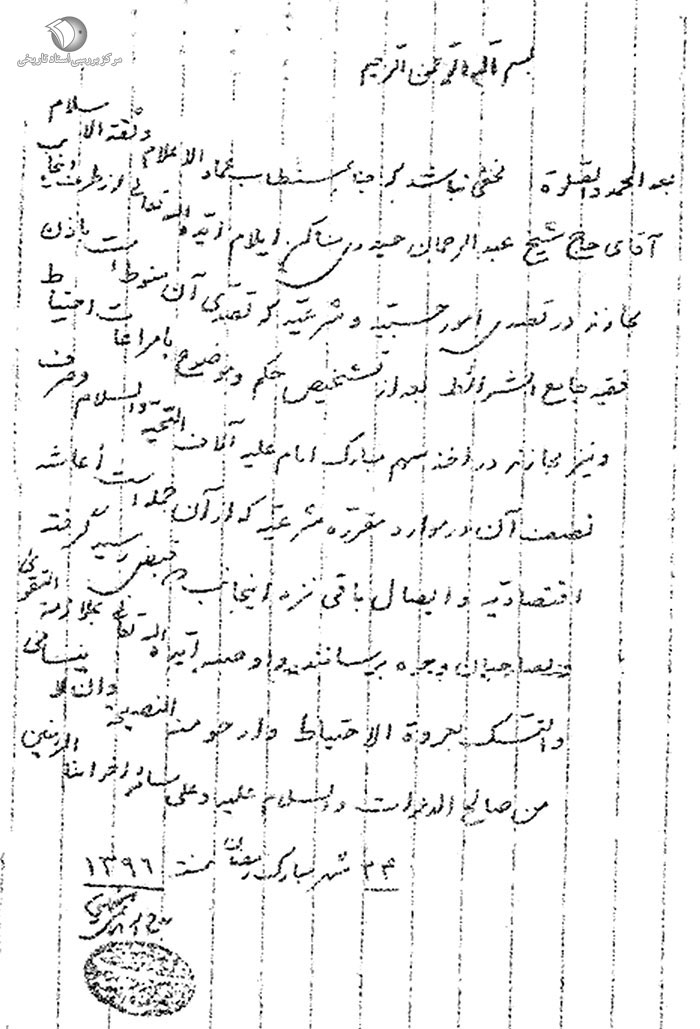 مرکز بررسی اسناد تاریخی
بسم الله الرحمن الرحیم
بعد الحمد والصلوة مخفی نباشد که جناب مستطاب عماد الاعلام وثقة الاسلام
آقای حاج شیخ عبدالرحمان حیدری ساکن ایلام ایّده الله تعالی از طرف اینجانب
مجازند در تصدی امور حسبیه و شرعیه که تصدّی آن منوط است باذن
فقیه جامع الشرائط بعد از تشخیص حکم و موضوع با مراعات احتیاط
و نیز مجازند در اخذ سهم مبارک امام علیه آلاف التحیّة والسلام و صرف
نصف آن در موارد مقرّره شرعیّه که از آن جمله است اعاشه
اقتصادیّه و ایصال باقی نزد اینجانب و قبض رسید گرفته
بصاحبان وجوه برسانند و اوصیه ایّده الله تعالی بملازمة التقوی
والتمسک بعروة الاحتیاط وارجو منه النصیحة وان لا ینسانی
من صالح الدعوات والسلام علیه وعلی سائر اخواننا المؤمنین
۲۴ شهر مبارک رمضان سنة ۱۳۹۶